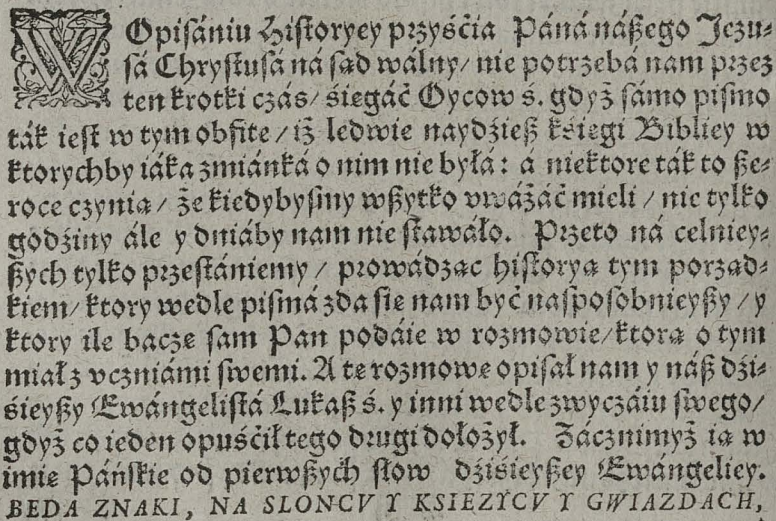 WOpisániu Historyey przyśćia Páná nászego Jezu-
sá Chrystusá ná sąd wálny/ nie potrzebá nam przez
ten krotki czás/ śiegáć Oycow ś. gdyż sámo pismo
ták iest w tym obfite/ iż ledwie naydźiesz kśięgi Bibliey w
ktorychby iáka zmiánká o nim nie byłá: á niektore ták to sze-
roce czynią/ że kiedybysmy wszytko vważáć mieli/ nie tylko
godźiny ále y dniáby nam nie stawáło. Przeto ná celniey-
szych tylko przestániemy/ prowádząc historyą tym porząd-
kiem/ ktory wedle pismá zda się nam być nasposobnieyszy/ y
ktory ile baczę sam Pan podáie w rozmowie/ ktorą o tym
miał z vczniámi swemi. A tę rozmowę opisał nam y nász dźi-
śieyszy Ewángelistá Lukasz ś. y inni wedle zwyczáiu swego/
gdyż co ieden opuśćił tego drugi dołożył. Zácznimyż ią w
imię Páńskie od pierwszych słow dźiśieyszey Ewángeliey.
BEDA ZNAKI, NA SLONCV Y KSIEZYCV Y GWIAZDACH,